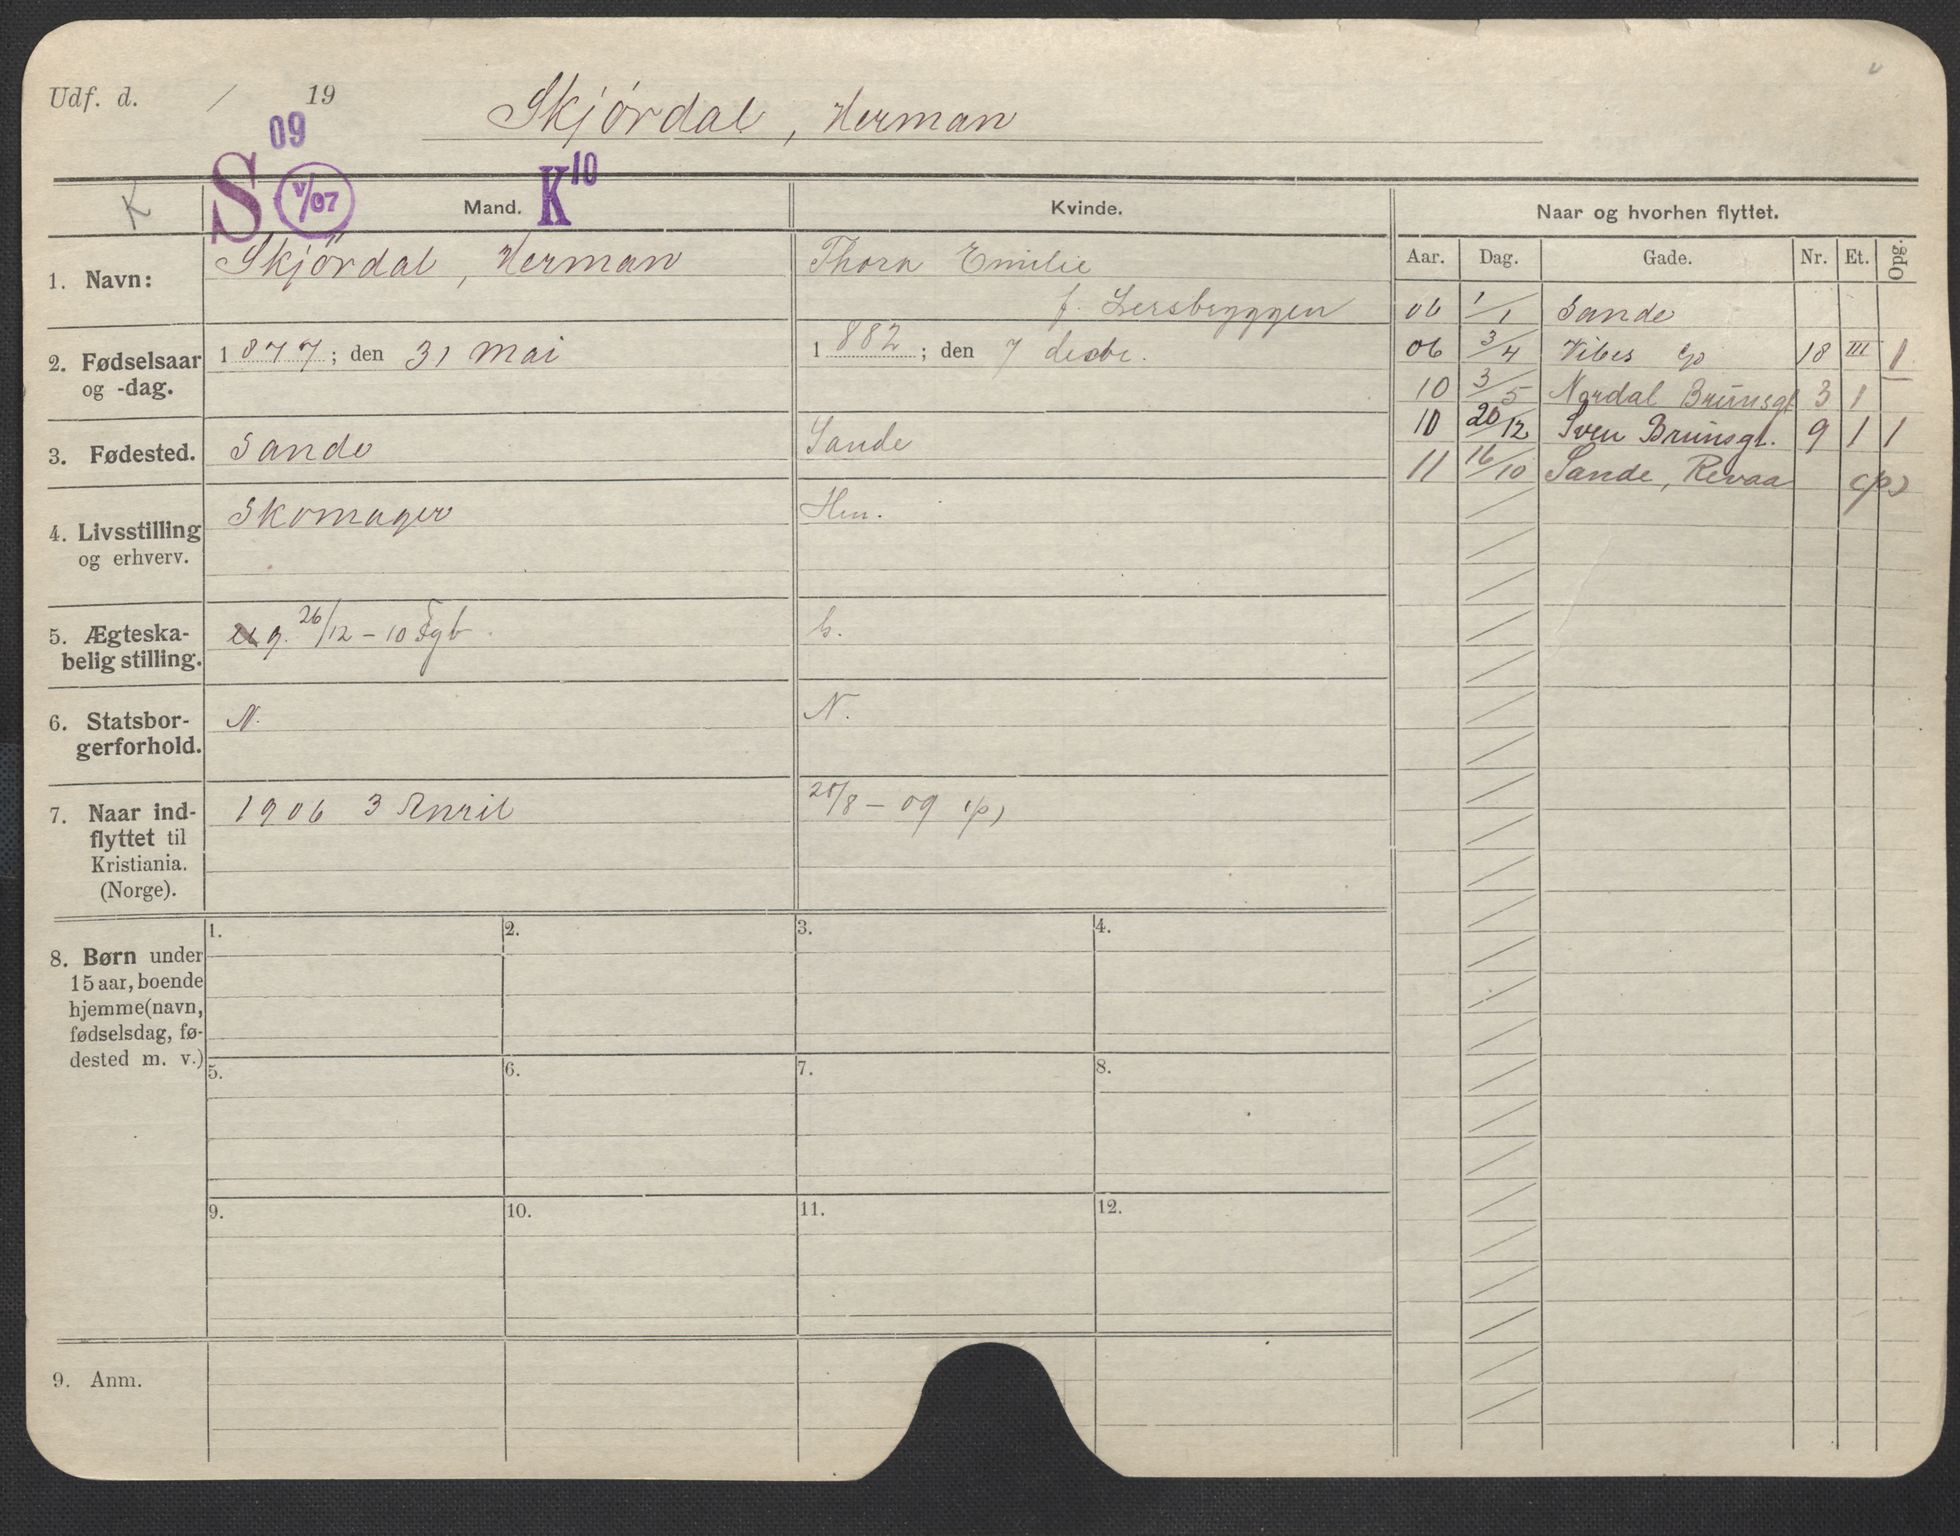 Udf. d. / 19
09
Skjørdal, Herman
K
S
V/07
Mand.
K10
Kvinde.
Naar og hvorhen flyttet.
Aar. Dag. Gade. Nr. Et. Opg.
1. Navn:
Skjördal, Herman
Thora Emilie
f.
2. Fødselsaar
og -dag.
1877; den 31 Mai
1882; den 7 decbr.
3. Fødested.
Sande
Sande
4. Livsstilling
og erhverv.
Skomager
Hu.
5. Ægteska-
belig stilling.
g. 26/12 – 10 Fgb.
6. Statsbor-
gerforhold.
N.
N.
7. Naar ind-
flyttet til
Kristiania.
(Norge).
1906 3 April
/8 – 09
8. Børn under
15 aar, boende
hjemme (navn,
fødselsdag, fø-
dested m. v.)
1. 2. 3. 4.
5. 6. 7. 8.
9. 10. 11. 12.
9. Anm.
06 1/1 Sande
06 3/4 Vibes g. 18 III 1
10 3/5 Nordal Brunsgt 3 1
10 20/12 Sven Brunsgt. 9 1 1
11 16/10 Sande, Revaa